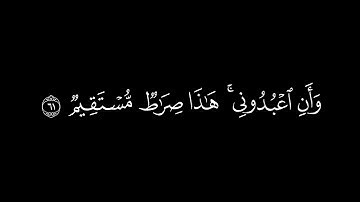 وَأَنِ ٱعۡبُدُونِيۚ هَٰذَا صِرَٰطٞ مُّسۡتَقِيمٞ ٦١